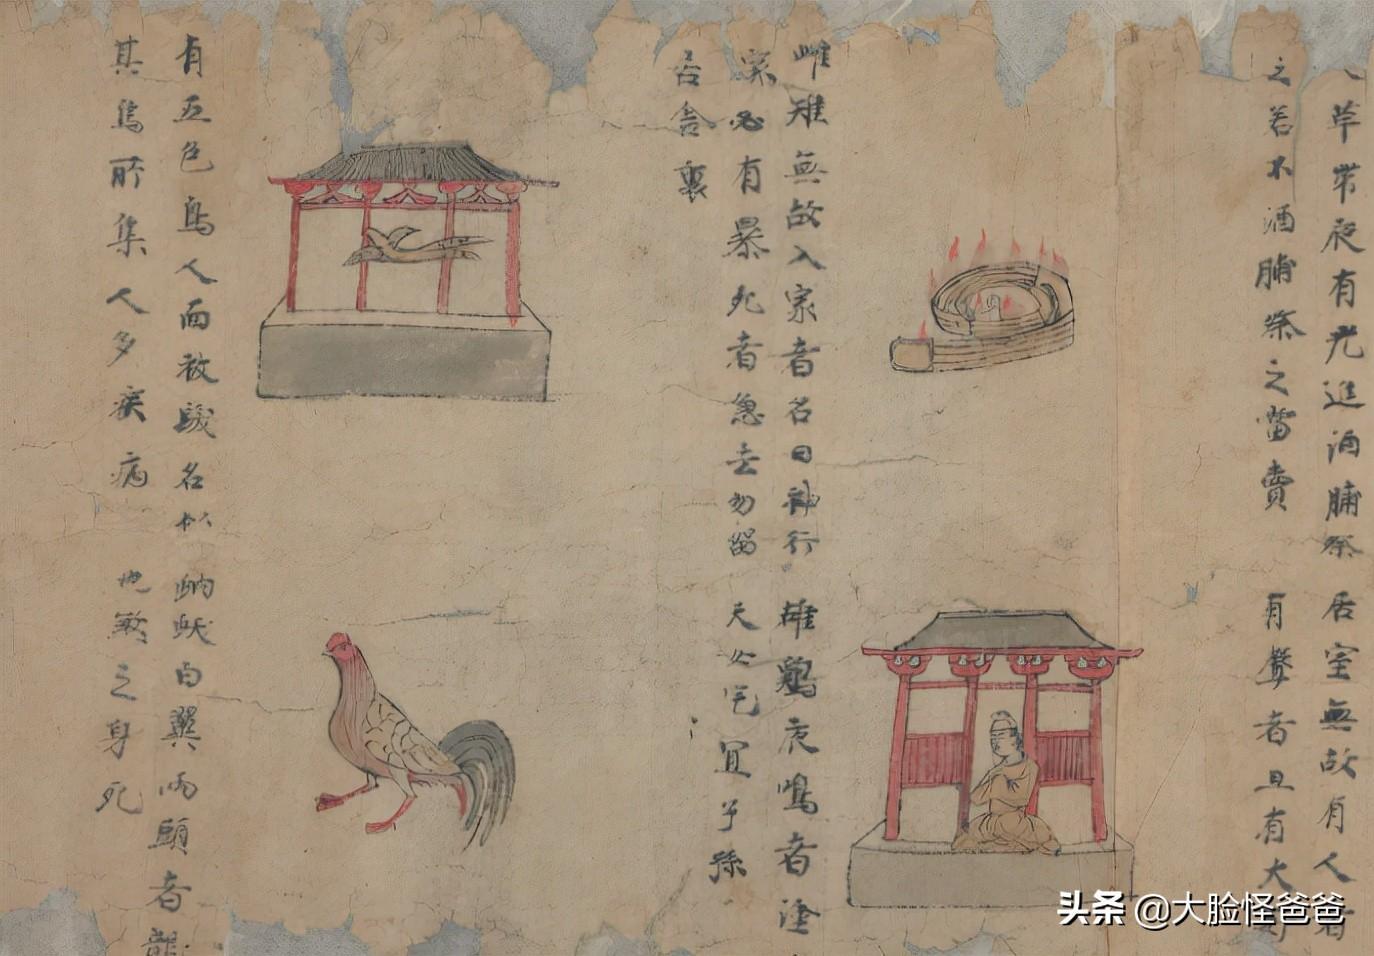 草带夜有光進酒脯祭
之若不酒脯祭之當賣
居室無故有人者
有聲者且有大
雌雉無故入家者名曰神行
家必有暴死者急去勿留
居舍裏
雄鷄夜鳴者塗
天必
宜子孫
有五色鳥人面被髮名
其鳥所集人多疾病
白翼两頭者
之身死
头条 @大脸怪爸爸